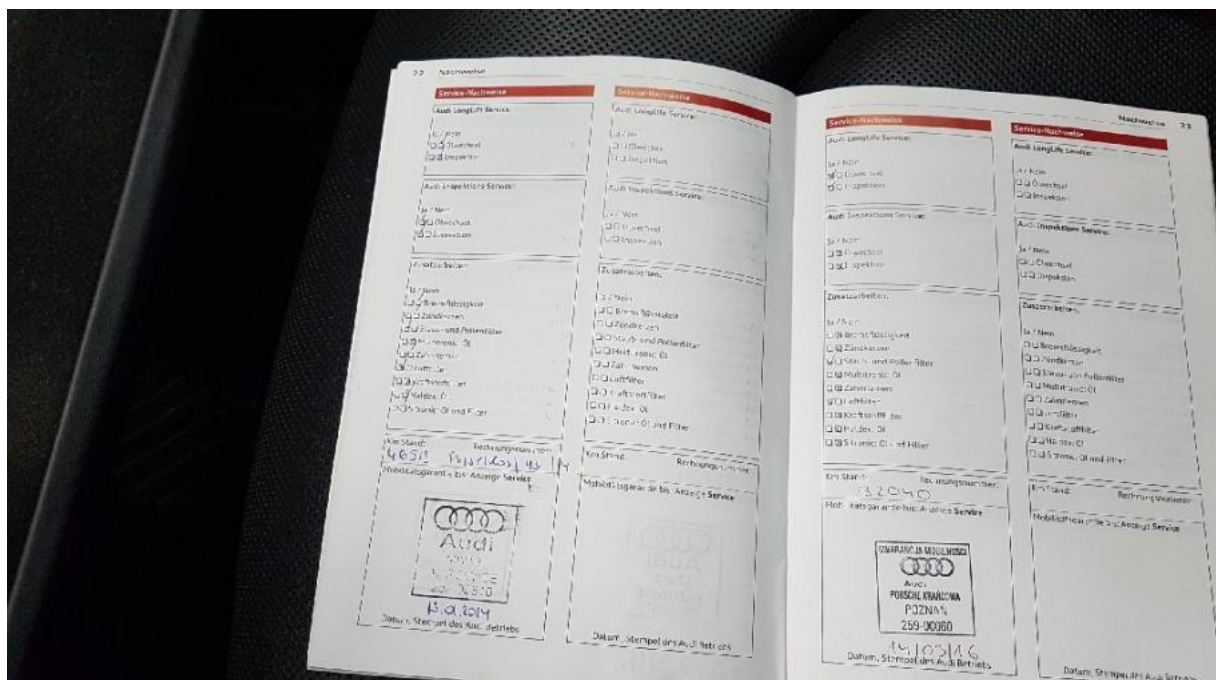 22 Nachweise
Service-Nachweise
Audi LongLife Service:
Ja / Nein
Ölwechsel
Inspektion
Audi Inspektions Service:
Ja / Nein
Ölwechsel
Inspektion
Zusatzarbeiten:
Ja / Nein
Bremsflüssigkeit
Zündkerzen
Staub- und Pollenfilter
Multitronic: Öl
Zahnriemen
Luftfilter
Kraftstofffilter
Haldex: Öl
S tronic: Öl und Filter
Km Stand: Rechnungsnummer:
Mobilitätsgarantie bis: Anzeige Service
Audi
13.01.2014
Datum, Stempel des Audi Betriebs
Service-Nachweise
Audi LongLife Service:
Ja / Nein
Ölwechsel
Inspektion
Audi Inspektions Service:
Ja / Nein
Ölwechsel
Inspektion
Zusatzarbeiten:
Ja / Nein
Bremsflüssigkeit
Zündkerzen
Staub- und Pollenfilter
Multitronic: Öl
Zahnriemen
Luftfilter
Kraftstofffilter
Haldex: Öl
S tronic: Öl und Filter
Km Stand: Rechnungsnummer:
Mobilitätsgarantie bis: Anzeige Service
Datum, Stempel des Audi Betriebs
Nachweise 23
Service-Nachweise
Audi LongLife Service:
Ja / Nein
Ölwechsel
Inspektion
Audi Inspektions Service:
Ja / Nein
Ölwechsel
Inspektion
Zusatzarbeiten:
Ja / Nein
Bremsflüssigkeit
Zündkerzen
Staub- und Pollenfilter
Multitronic: Öl
Zahnriemen
Luftfilter
Kraftstofffilter
Haldex: Öl
S tronic: Öl und Filter
Km Stand: Rechnungsnummer:
Mobilitätsgarantie bis: Anzeige Service
GWARANCJA MOBILNOŚCI
Audi
PORSCHE KRAŃCOWA
POZNAŃ
259-00060
14/03/16
Datum, Stempel des Audi Betriebs
Service-Nachweise
Audi LongLife Service:
Ja / Nein
Ölwechsel
Inspektion
Audi Inspektions Service:
Ja / Nein
Ölwechsel
Inspektion
Zusatzarbeiten:
Ja / Nein
Bremsflüssigkeit
Zündkerzen
Staub- und Pollenfilter
Multitronic: Öl
Zahnriemen
Luftfilter
Kraftstofffilter
Haldex: Öl
S tronic: Öl und Filter
Km Stand: Rechnungsnummer:
Mobilitätsgarantie bis: Anzeige Service
Datum, Stempel des Audi Betriebs